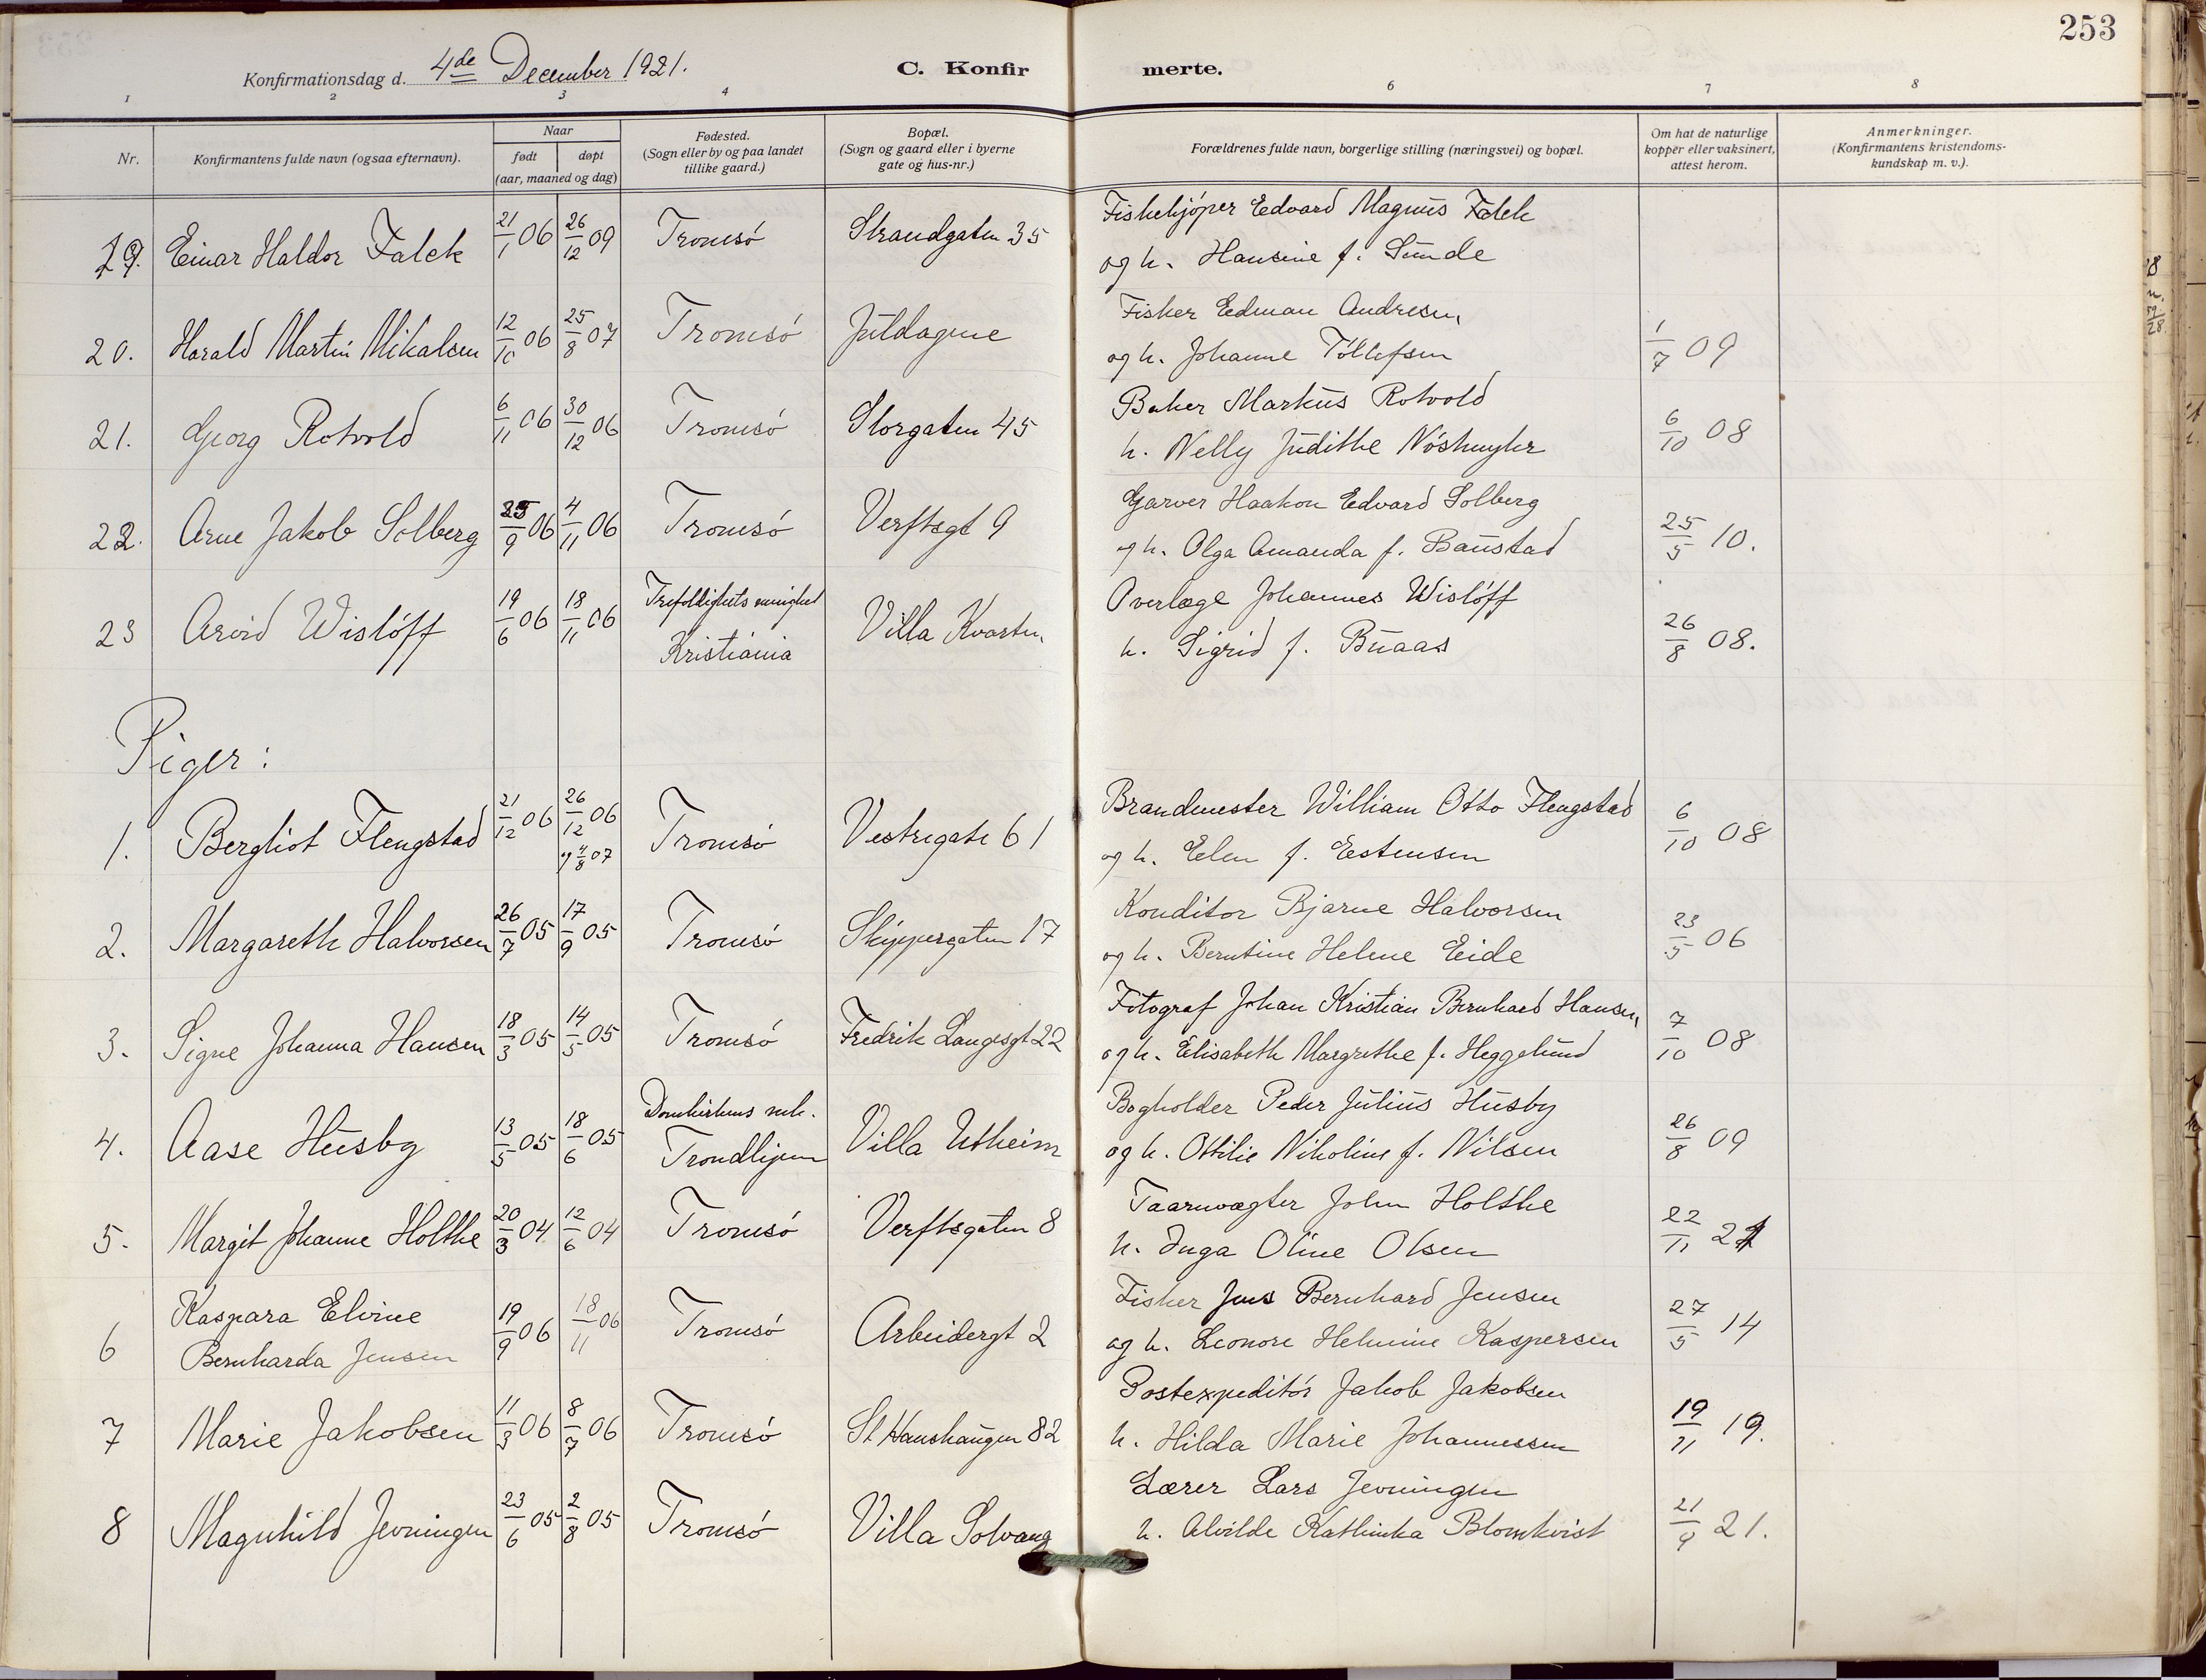 253
Konfirmationsdag d. 4de December 1921.
C. Konfirmerte.
1 2 3 4 6 7 8
Nr. Konfirmantens fulde navn (ogsaa efternavn). Naar født døpt (aar, maaned og dag) Fødested. (Sogn eller by og paa landet tillike gaard.) Bopæl. (Sogn og gaard eller i byerne gate og hus-nr.) Forældrenes fulde navn, borgerlige stilling (næringsvei) og bopæl. Om hat de naturlige kopper eller vaksinert, attest herom. Anmerkninger. (Konfirmantens kristendomskundskap m. v.).
19. Einar Haldor Falck 21/1 06 26/12 09 Tromsö Strandgaten 35 Fiskekjöper Edvard Magnus Falck
og h. Hansine f. Sunde
20. Harald Martin Mikalsen 12/10 06 25/8 07 Tromsö Juldagene Fisker Edman Andresen,
og h. Johanne Tollefsen 1/7 09
21. Georg Rotvold 6/11 06 30/12 06 Tromsö Storgaten 45 Baker Markus Rotvold
h. Nelly Judithe 6/10 08
22. Arne Jakob Solberg 9 06 4/11 06 Tromsö Verftsgt 9 Garver Haakon Edvard Solberg
og h. Olga Amanda f. Baustad 25/5 10.
23 Arvid Wislöff 19/6 06 18/11 06 Trefoldighets menighet Kristiania Villa Overlæge Johannes Wislöff
h. Sigrid f. Buaas 26/8 08.
Piger:
1. Bergliot Flengstad 21/12 06 26/12 06 og 4/8 07 Tromsö Vestregate 61 Brandmester William Otto Flengstad
og h. Elen f. Estensen 6/10 08
2. Margareth Halvorsen 26/7 05 17/9 05 Tromsö Skippergaten 17 Konditor Bjarne Halvorsen
og h. Berntine Helene Eide 23/5 06
3. Signe Johanna Hansen 18/3 05 14/5 05 Tromsö Fredrik Langesgt 22 Fotograf Johan Kristian Bernhard Hansen,
og h. Elisabeth Margrethe f. Heggelund 7/10 08
4. Aase Husby 13/5 05 18/6 05 Domkirkens mh. Trondhjem Villa Utheim Bogholder Peder Julius Husby
og h. Ottilie Nikoline f. Nilsen 26/8 09
5. Margit Johanne Holthe 20/3 04 12/6 04 Tromsö Verftsgaten 8 Taarnvægter John Holthe
h. Inga Oline Olsen 22/11 21
6 Kaspara Elvine Bernharda Jensen 19/9 06 18/11 06 Tromsö Arbeidergt 2 Fisker Jens Bernhard Jensen
og h. Leonore Helmine Kaspersen 27/5 14
7 Marie Jakobsen 11/3 06 8/7 06 Tromsö St Hanshaugen 82 Postexpeditör Jakob Jakobsen
h. Hilda Marie Johannessen 19/11 19.
8 Magnhild Jevningen 23/6 05 2/8 05 Tromsö Villa Solvang Lærer Lars Jevningen
h. Alvilde Kathinka Blomkvist 21/9 21.